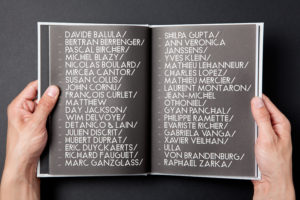 DAVIDE BALULA/
BERTRAN BERRENGER/
PASCAL BIRCHER/
MICHEL BLAZY/
NICOLAS BOULARD/
MIRCEA CANTOR/
SUSAN COLLIS/
JOHN CORNU/
FRANÇOIS CURLET/
MATTHEW
DAY JACKSON/
WIM DELVOYE/
DETANICO & LAIN/
JULIEN DISCRIT/
HUBERT DUPRAT/
ERIC DUYCKAERTS/
RICHARD FAUGUET/
MARC GANZGLASS/
SHILPA GUPTA/
ANN VERONICA
JANSSENS/
YVES KLEIN/
MATHIEU LEHANNEUR/
CHARLES LOPEZ/
MATHIEU MERCIER/
LAURENT MONTARON/
JEAN-MICHEL
OTHONIEL/
GYAN PANCHAL/
PHILIPPE RAMETTE/
EVARISTE RICHER/
GABRIELA VANGA/
XAVIER VEILHAN/
ULLA
VON BRANDENBURG/
RAPHAEL ZARKA/